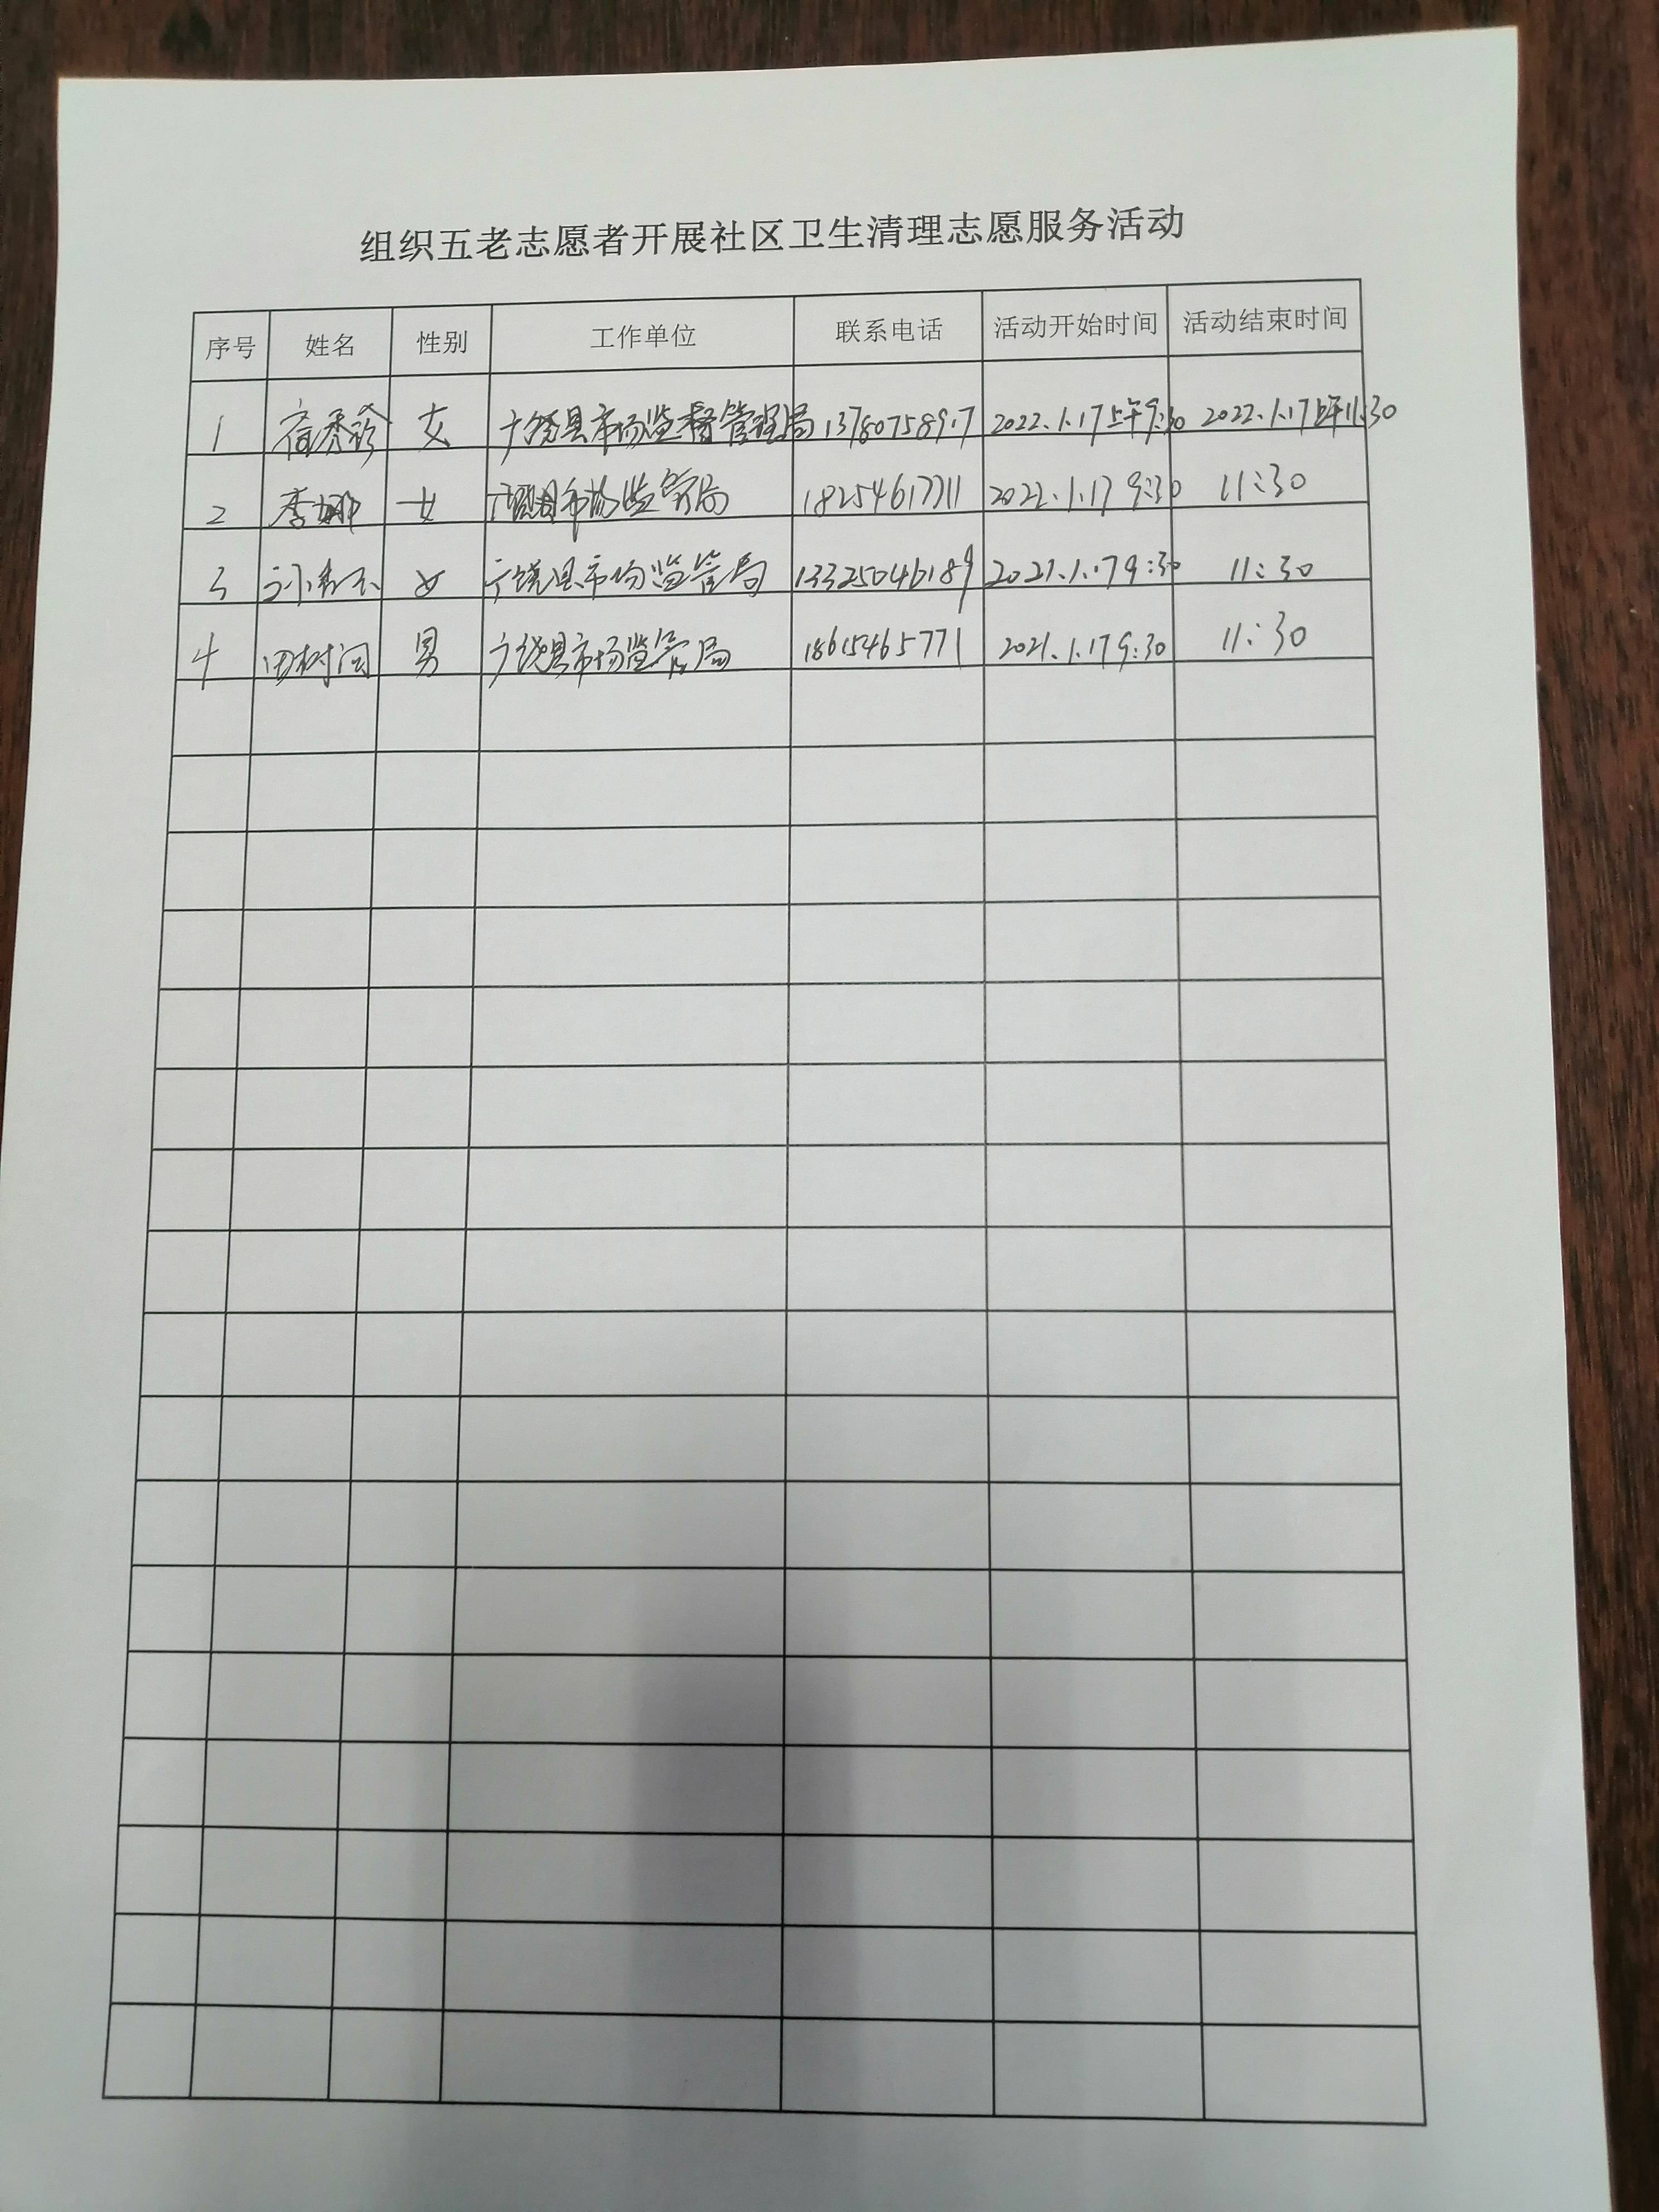 组织五老志愿者开展社区卫生清理志愿服务活动
序号 姓名 性别 工作单位 联系电话 活动开始时间 活动结束时间
1 宿秀珍 女 广饶县市场监督管理局 13780758917 2022.1.17上午9:30 2022.1.17上午11:30
2 李娜 女 市场监管局 18254617711 2022.1.17 9:30 11:30
3 女 广饶县市场监管局 13325046189 2021.1.17 9:30 11:30
4 男 广饶县市场监管局 18615465771 2021.1.17 9:30 11:30